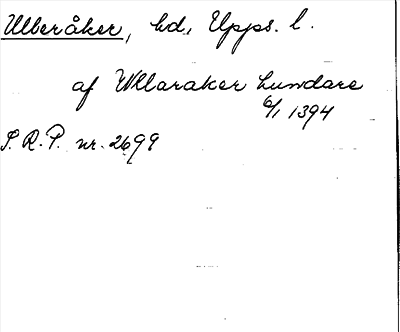 Ulleråker, hd., Upps. l.
af Wllaraker hundare
6/1 1394
S. R. P. nr. 2699